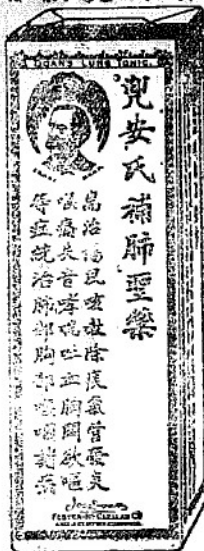 DOAN'S LUNG TONIC.
兜安氏補肺聖藥
專治傷風咳嗽除痰氣管發炎
喉痛失音哮喘吐血胸悶欲嘔
等症統治肺部胸部喉嚨諸病
FOSTER-McCLELLAN CO